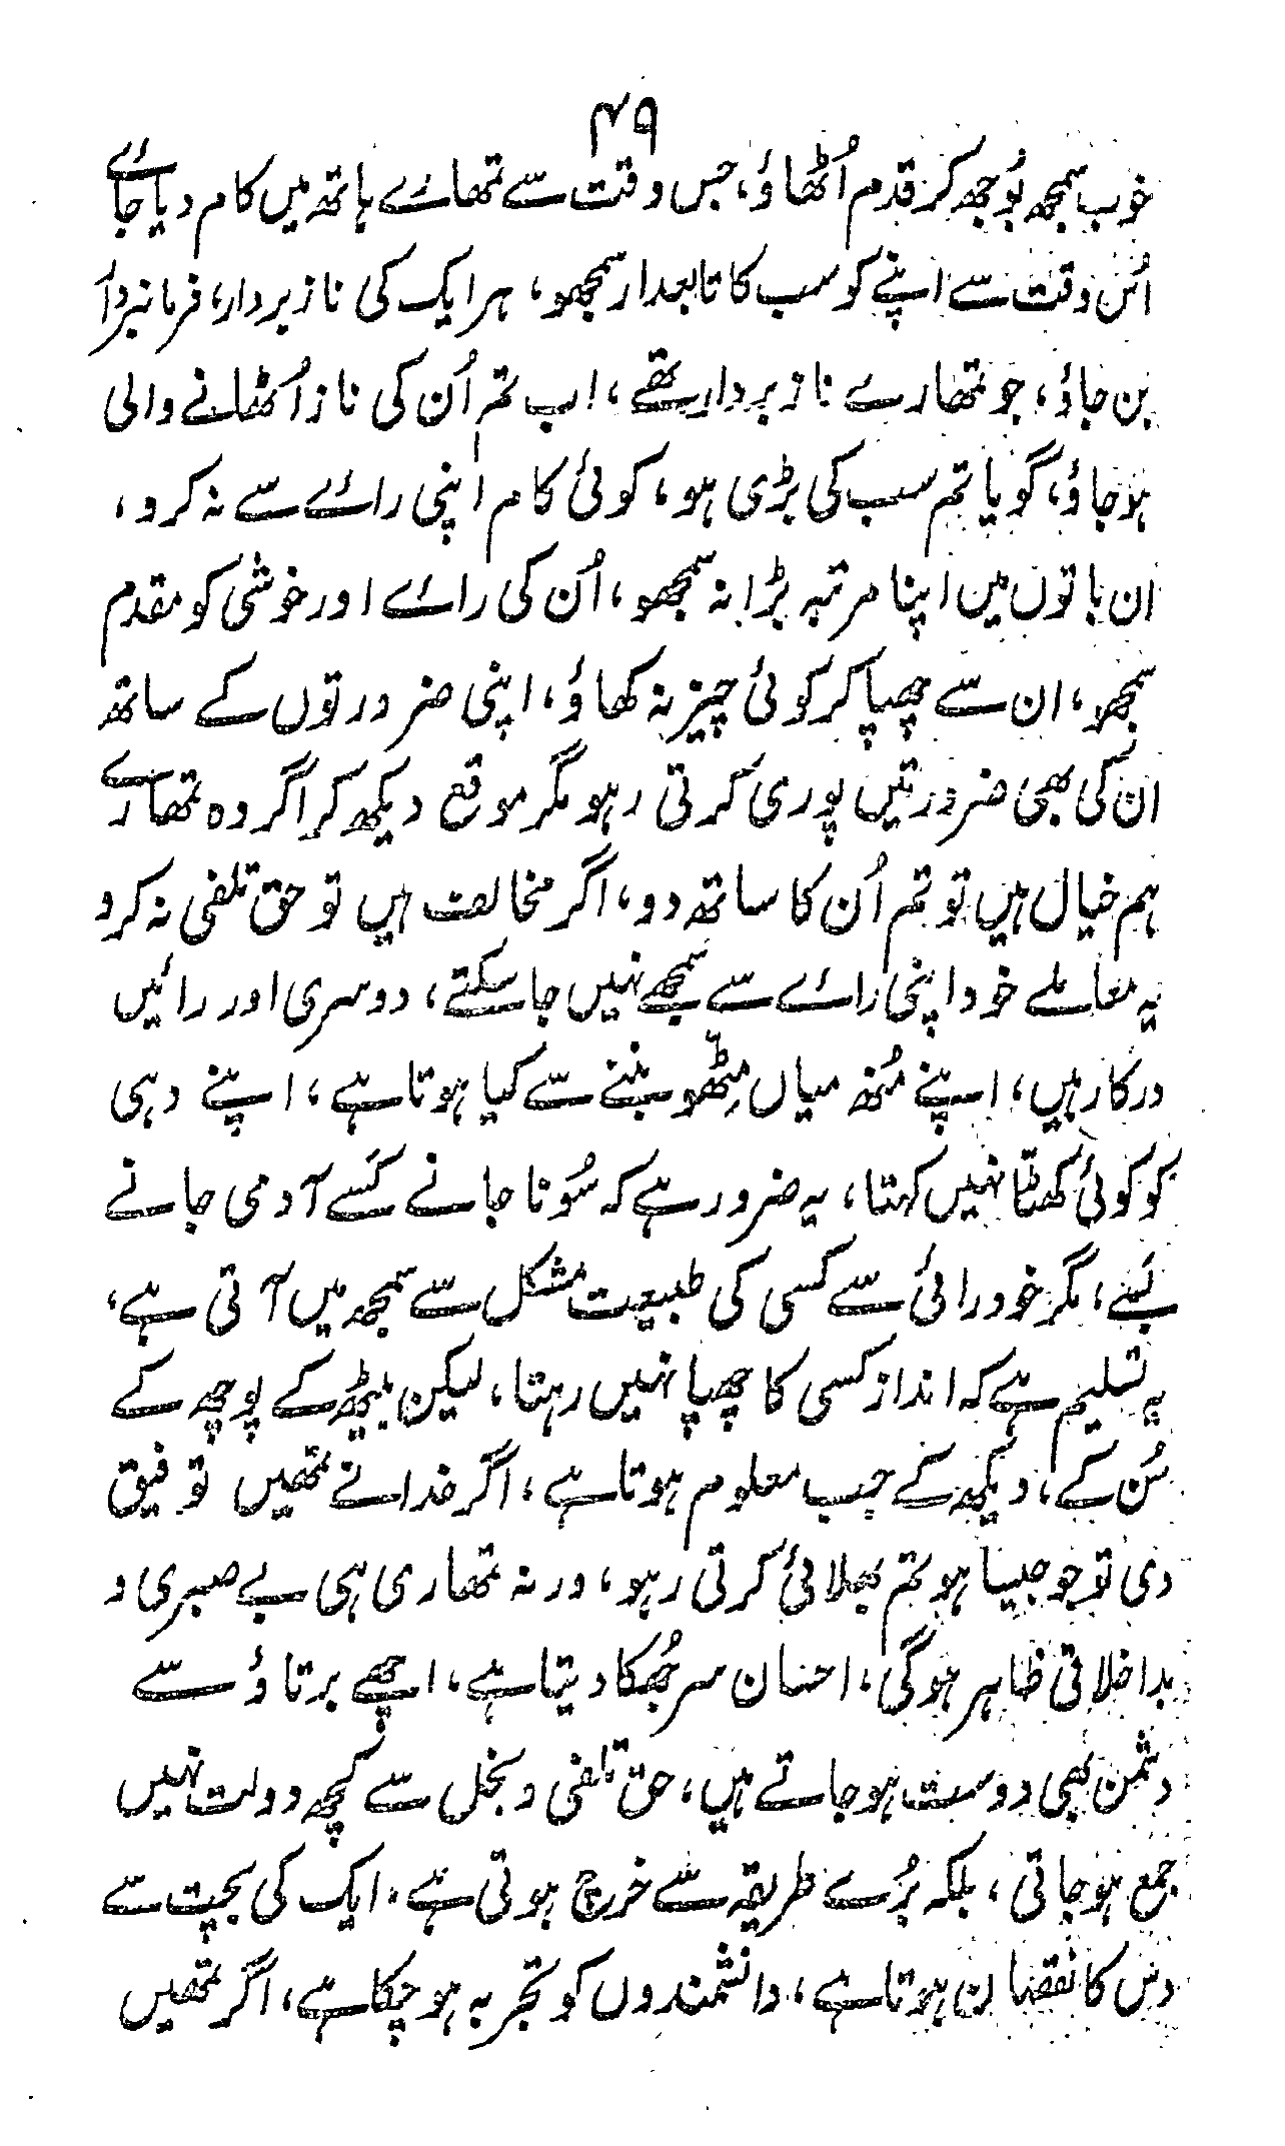 ۴۹
خوب سمجھ بُوجھ کر قدم اُٹھاؤ، جس وقت سے تمھارے ہاتھ میں کام دیا جائے
اُس وقت سے اپنے کو سب کا تابعدار سمجھو، ہر ایک کی ناز بردار، فرمانبردار
بن جاؤ، جو تمھارے ناز بردار تھے، اب تم اُن کی ناز اُٹھانے والی
ہو جاؤ، گویا تم سب کی بڑی ہو، کوئی کام اپنی رائے سے نہ کرو،
ان باتوں میں اپنا مرتبہ بڑا نہ سمجھو، اُن کی رائے اور خوشی کو مقدم
سمجھو، ان سے چھپا کر کوئی چیز نہ کھاؤ، اپنی ضرورتوں کے ساتھ
ان کی بھی ضرورتیں پوری کرتی رہو مگر موقع دیکھ کر اگر وہ تمھارے
ہم خیال ہیں تو تم اُن کا ساتھ دو، اگر مخالف ہیں تو حق تلفی نہ کرو
یہ معاملے خود اپنی رائے سے سمجھے نہیں جا سکتے، دوسری اور رائیں
درکار ہیں، اپنے مُنھ میاں مِٹھّو بننے سے کیا ہوتا ہے، اپنے دہی
کو کوئی کھٹّا نہیں کہتا، یہ ضرور ہے کہ سُونا جانے کَسے آدمی جانے
بَسے، مگر خود رائی سے کسی کی طبیعت مشکل سے سمجھ میں آتی ہے،
یہ تسلیم ہے کہ انداز کسی کا چھپا نہیں رہتا، لیکن بیٹھ کے پوچھ کے
سُن کے، دیکھ کے جب معلوم ہوتا ہے، اگر خدا نے تمھیں توفیق
دی تو جو جیسا ہو تم بھلائی کرتی رہو، ورنہ تمھاری ہی بے صبری و
بد اخلاقی ظاہر ہو گی، احسان سر جُھکا دیتا ہے، اچھے برتاؤ سے
دشمن بھی دوست ہو جاتے ہیں، حق تلفی و بخل سے کچھ دولت نہیں
جمع ہو جاتی، بلکہ بُرے طریقہ سے خرچ ہوتی ہے، ایک کی بچت سے
دس کا نقصان ہوتا ہے، دانشمندوں کو تجربہ ہو چکا ہے، اگر تمھیں